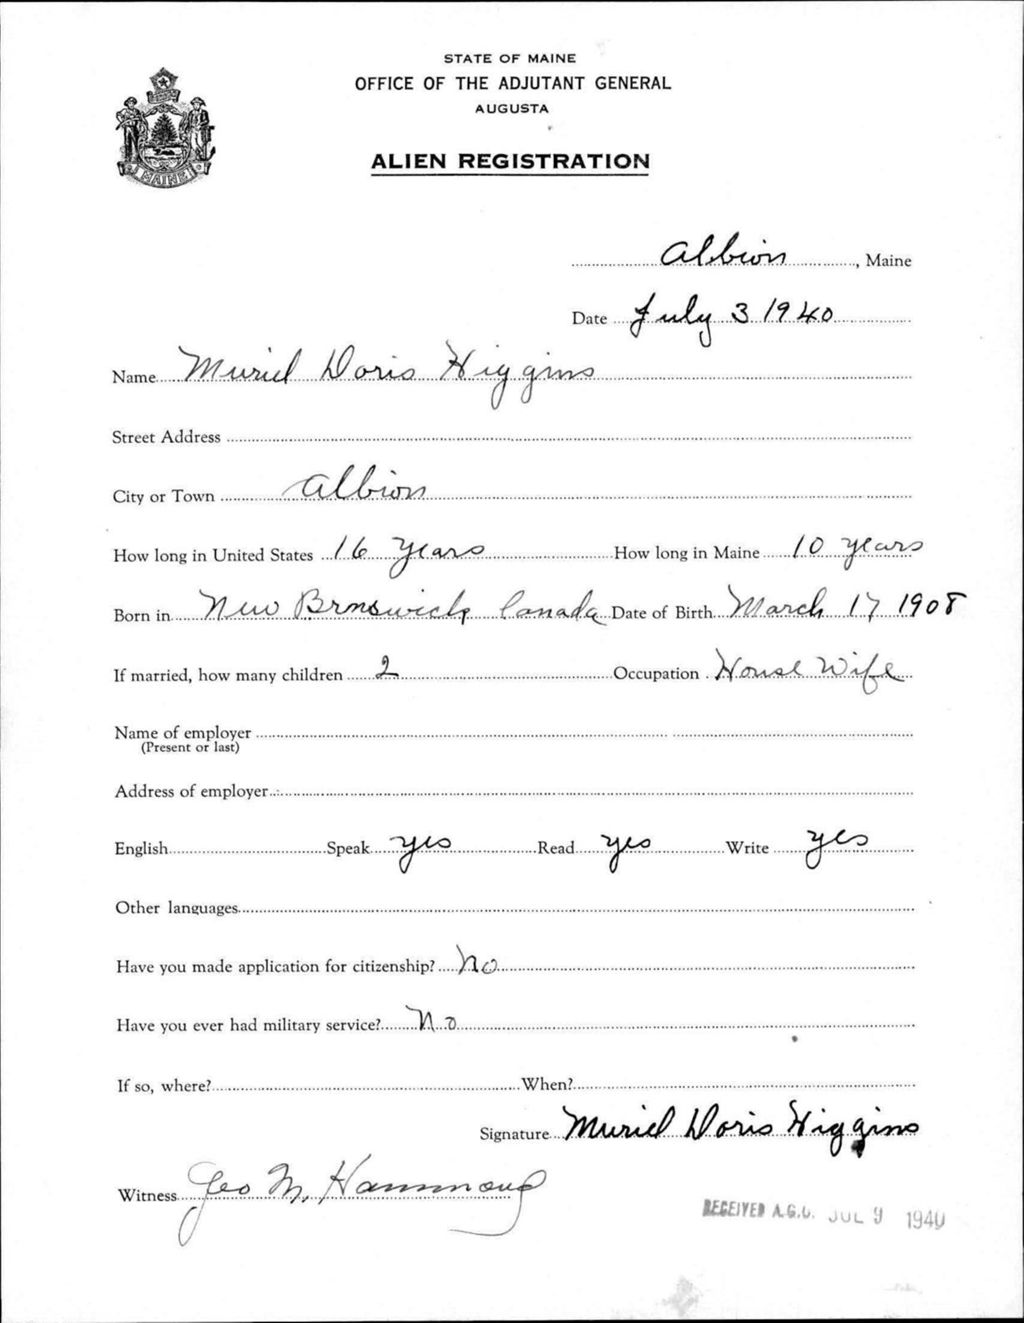 STATE OF MAINE
OFFICE OF THE ADJUTANT GENERAL
AUGUSTA
ALIEN REGISTRATION
MAINE
Albion, Maine
Date July 3 1940
Name Muriel Doris Higgins
Street Address
City or Town Albion
How long in United States 16 years How long in Maine 10 years
Born in New Brnswick Canada Date of Birth March 17 1908
If married, how many children 2 Occupation House Wife
Name of employer
(Present or last)
Address of employer
English Speak yes Read yes Write yes
Other languages
Have you made application for citizenship? No
Have you ever had military service? No
If so, where? When?
Signature Muriel Doris Higgins
Witness Geo M. Hammond
RECEIVED A.G.O. JUL 9 1940